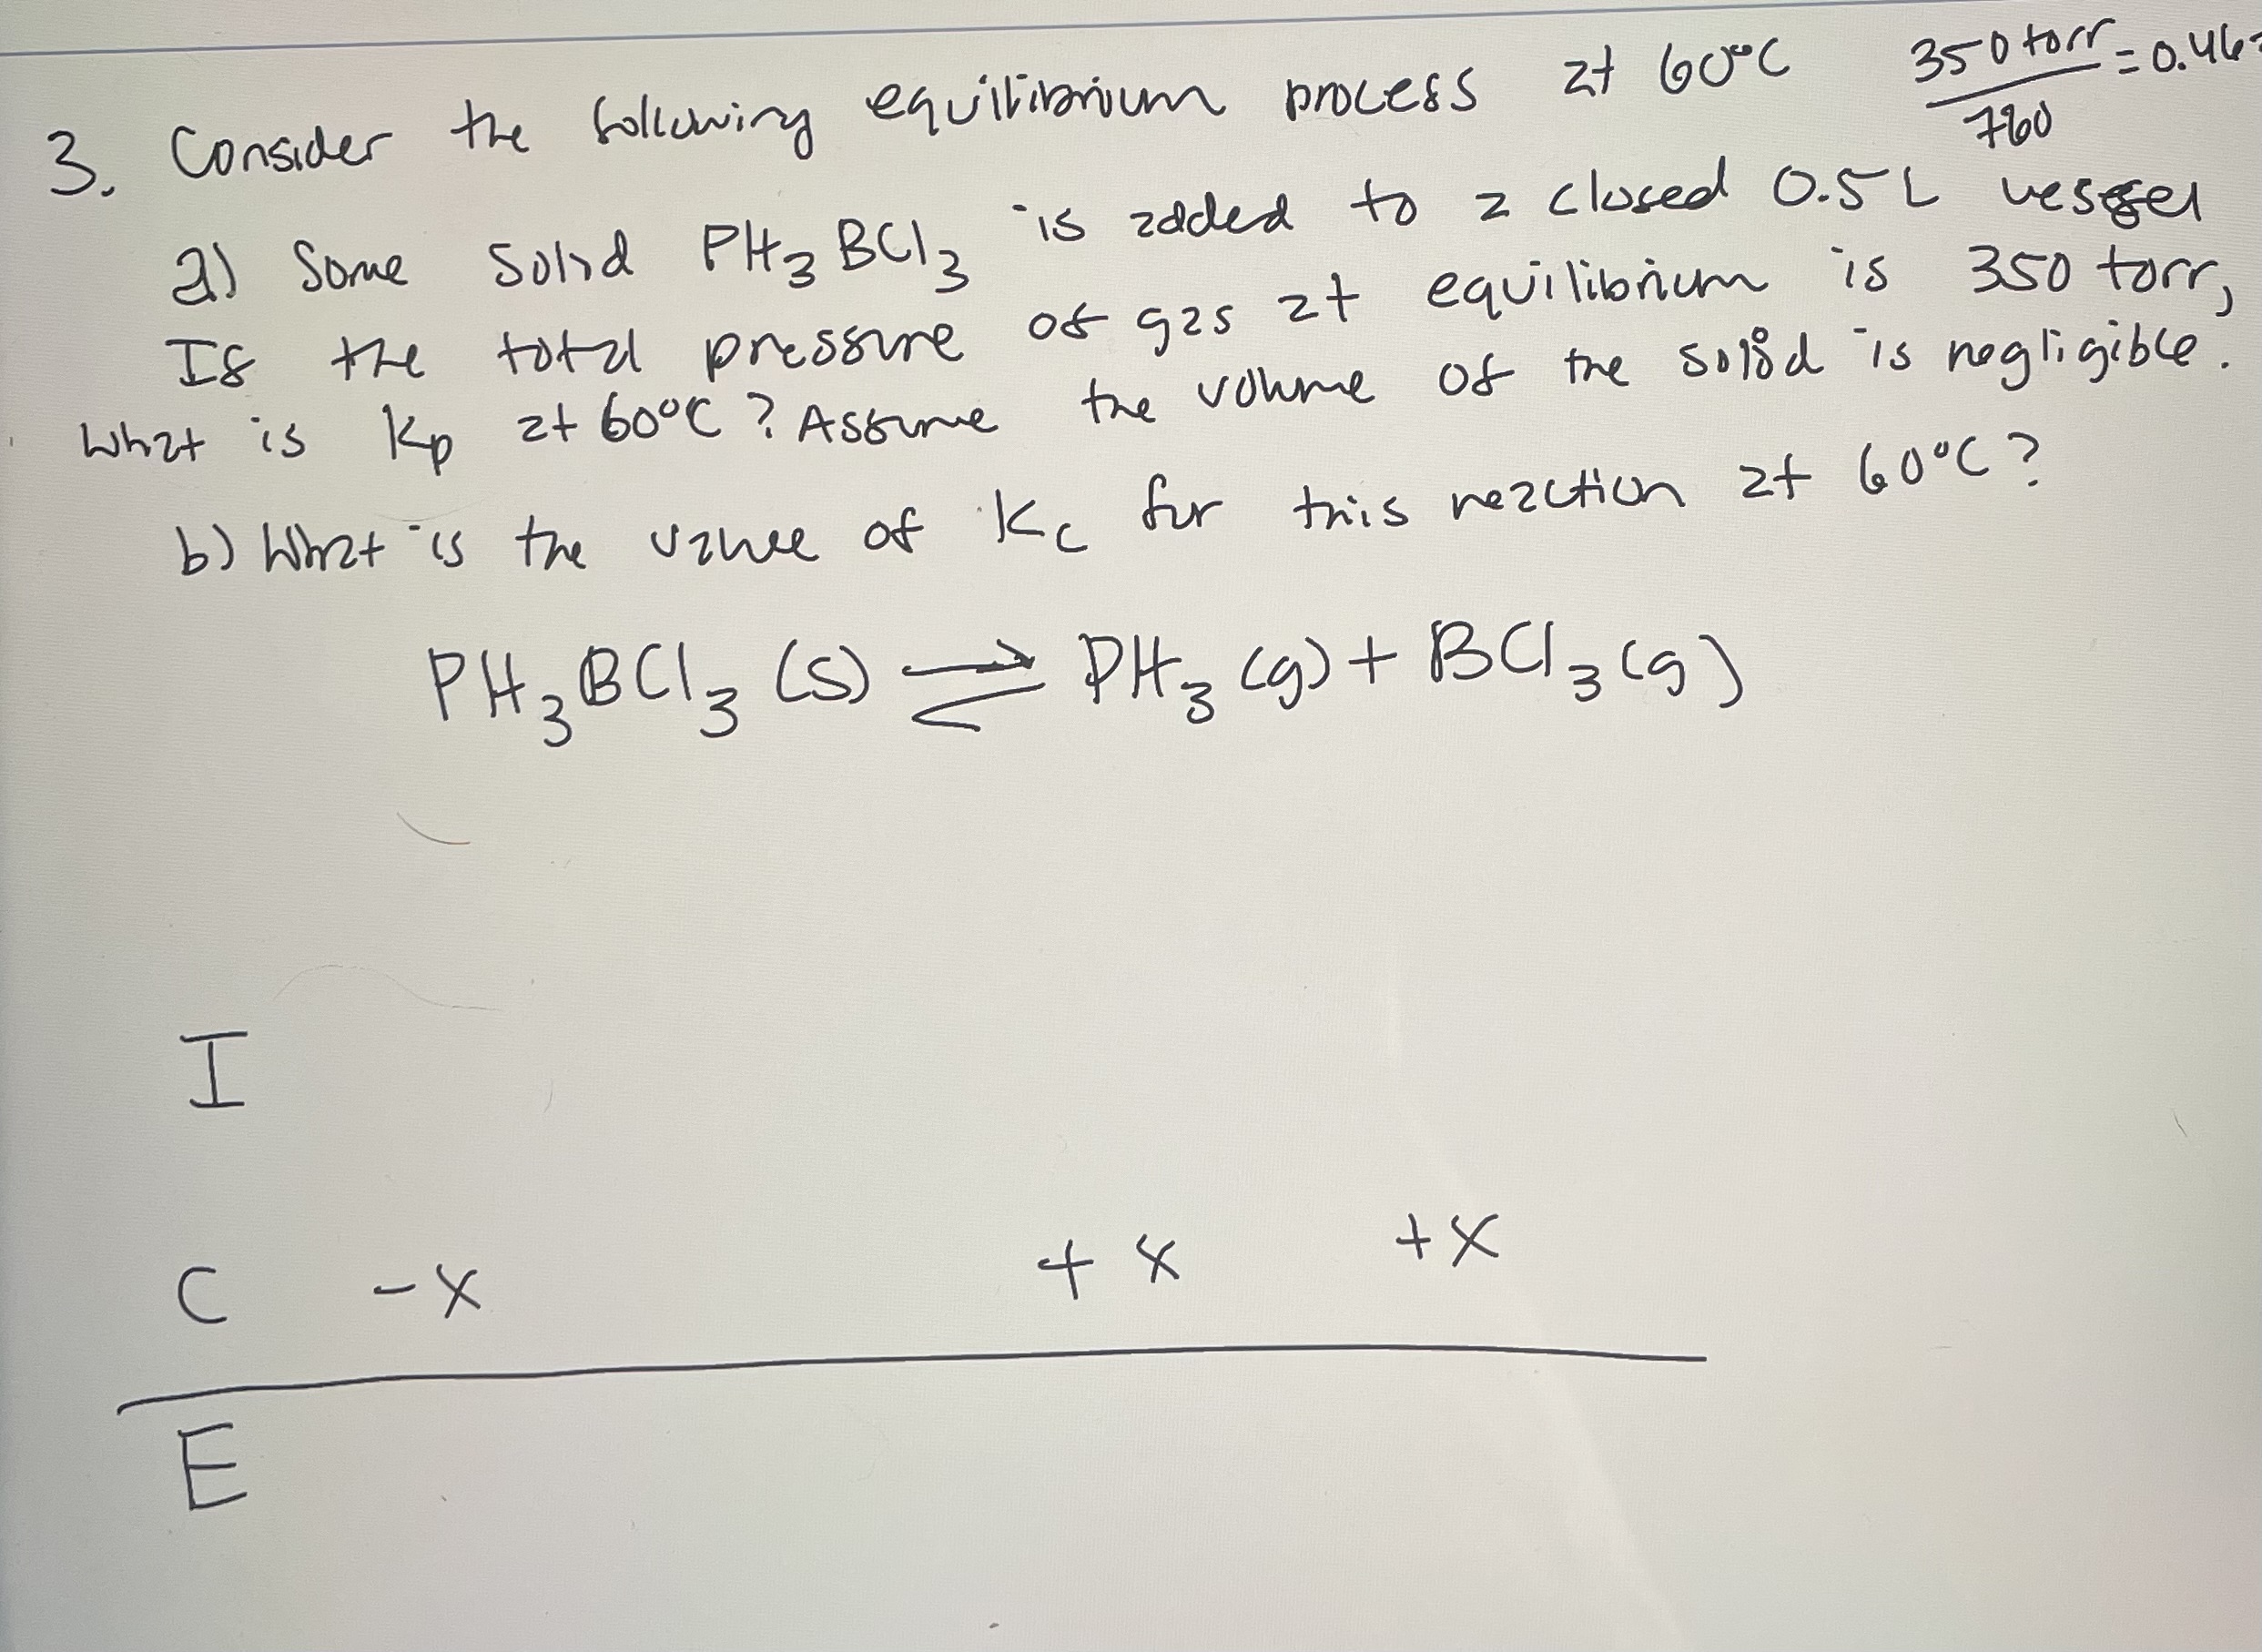 3. Consider the following equilibrium process at 60°C
350 torr = 0.46
760
a) Some solid PH₃BCl₃ is added to a closed 0.5L vessel
If the total pressure of gas at equilibrium is 350 torr,
What is Kp at 60°C? Assume the volume of the solid is negligible.
b) What is the value of Kc for this reaction at 60°C?
PH₃BCl₃ (s) ⇌ PH₃ (g) + BCl₃ (g)
I
C -x +x +x
E